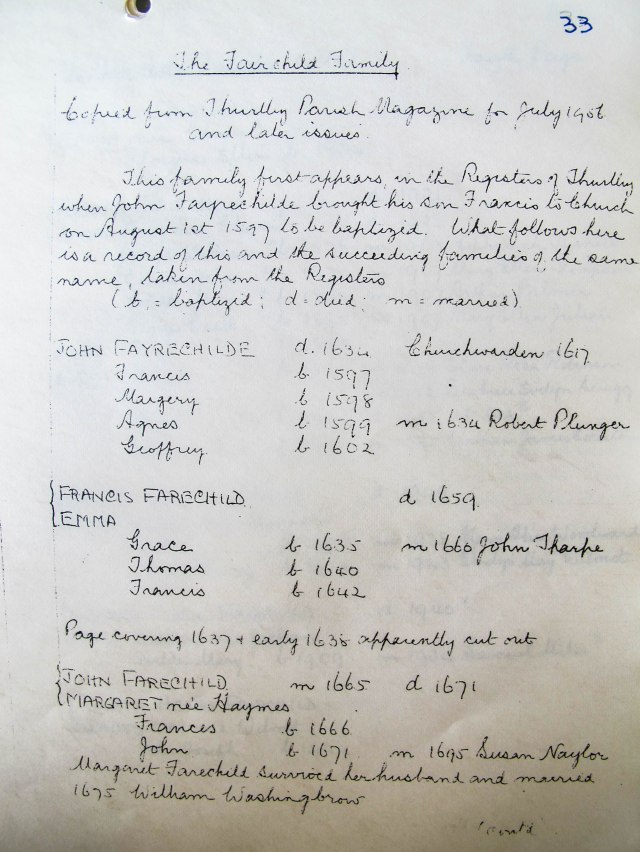 33
The Fairchild Family.
Copied from Thurlby Parish Magazine for July 1956
and later issues.
This family first appears, in the Registers of Thurlby
when John Fayrechilde brought his son Francis to Church
on August 1st 1597 to be baptized. What follows here
is a record of this and the succeeding families of the same
name, taken from the Registers
(b. = baptizid; d = died; m = married)
JOHN FAYRECHILDE d. 1634 Churchwarden 1617
Francis b 1597
Margery b 1598
Agnes b 1599 m 1634 Robert Plunger
Geoffrey b 1602
FRANCIS FARECHILD d 1659
EMMA
Grace b 1635 m 1660 John Tharpe
Thomas b 1640
Francis b 1642
Page covering 1637 & early 1638 apparently cut out
JOHN FARECHILD m 1665 d 1671
MARGARET née Haymes
Frances b 1666
John b 1671 m 1695 Susan Naylor
Margaret Farechild survived her husband and married
1675 William Washingbrow
contd